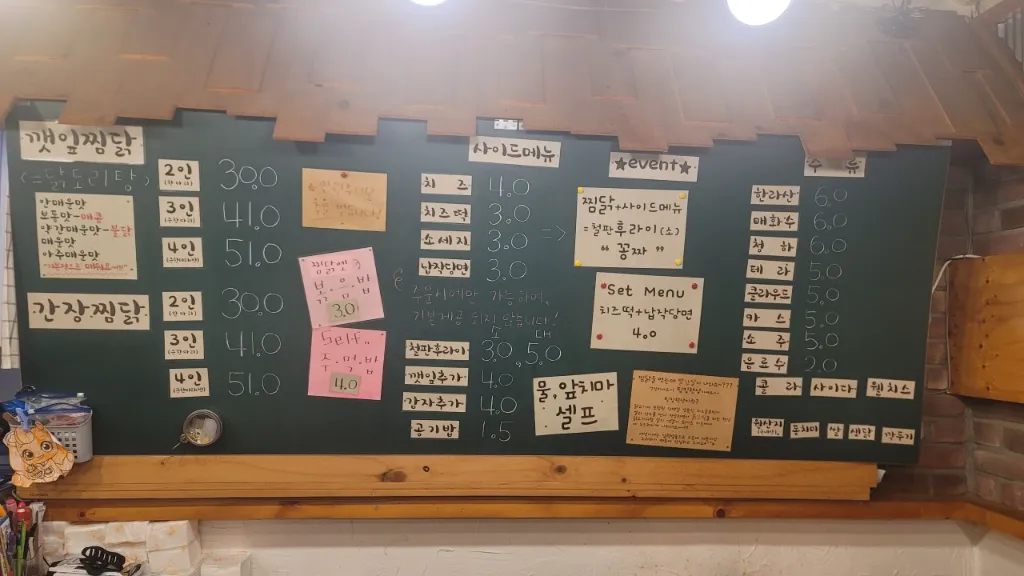 깻잎찜닭
(=닭도리탕)
안매운맛
보통맛-매콤
약간매운맛-불닭
매운맛
아주매운맛
2인 30.0
(한마리)
3인 41.0
4인 51.0
간장찜닭
2인 30.0
(한마리)
3인 41.0
4인 51.0
찜닭엔
볶음밥
3.0
Self..
주먹밥
4.0
사이드메뉴
치즈 4.0
치즈떡 3.0
소세지 3.0
납작당면 3.0
주문시에만 가능하며,
기본제공 되지 않습니다!
소 대
철판후라이 3.0, 5.0
깻잎추가 4.0
감자추가 4.0
공기밥 1.5
★event★
찜닭+사이드메뉴
=철판후라이(소)
"꽁짜"
Set Menu
치즈떡+납작당면
4.0
물,앞치마
셀프
주류
한라산 6.0
매화수 6.0
청하 6.0
테라 5.0
클라우드 5.0
카스 5.0
소주 5.0
음료수 2.0
콜라 사이다 웰치스
원산지 동치미 쌀 생닭 깍두기
(국내산)